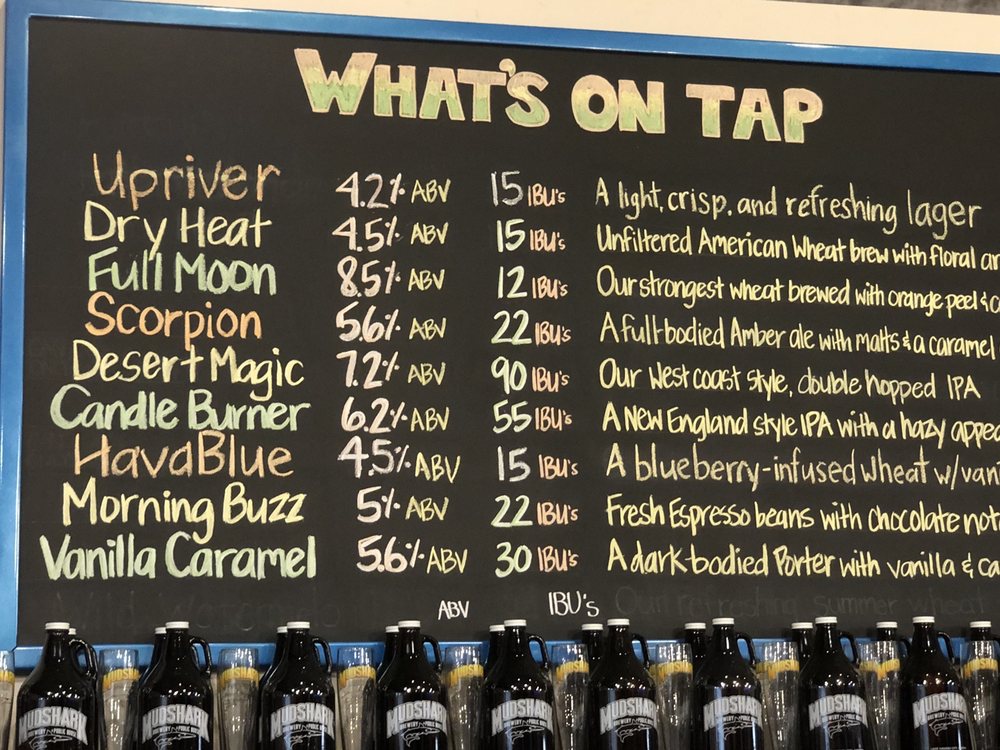 WHAT'S ON TAP
Upriver 4.2% ABV 15 IBU's A light, crisp, and refreshing lager
Dry Heat 4.5% ABV 15 IBU's Unfiltered American Wheat brew with floral
Full Moon 8.5% ABV 12 IBU's Our strongest wheat brewed with orange peel &
Scorpion 5.6% ABV 22 IBU's A full-bodied Amber ale with malts & a caramel
Desert Magic 7.2% ABV 90 IBU's Our West coast style, double hopped IPA
Candle Burner 6.2% ABV 55 IBU's A New England style IPA with a hazy appea
HavaBlue 4.5% ABV 15 IBU's A blueberry-infused wheat w/van
Morning Buzz 5% ABV 22 IBU's Fresh Espresso beans with chocolate not
Vanilla Caramel 5.6% ABV 30 IBU's A dark-bodied Porter with vanilla & ca
ABV IBU's Our refreshing summer wheat
MUDSHARK MUDSHARK MUDSHARK MUDSHARK MUDSHARK MUDSHARK MUDSHARK MUDSHARK